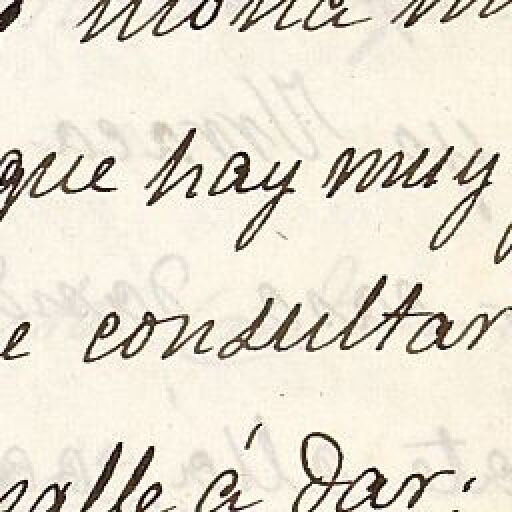 que hay muy
e consultar
á dar: